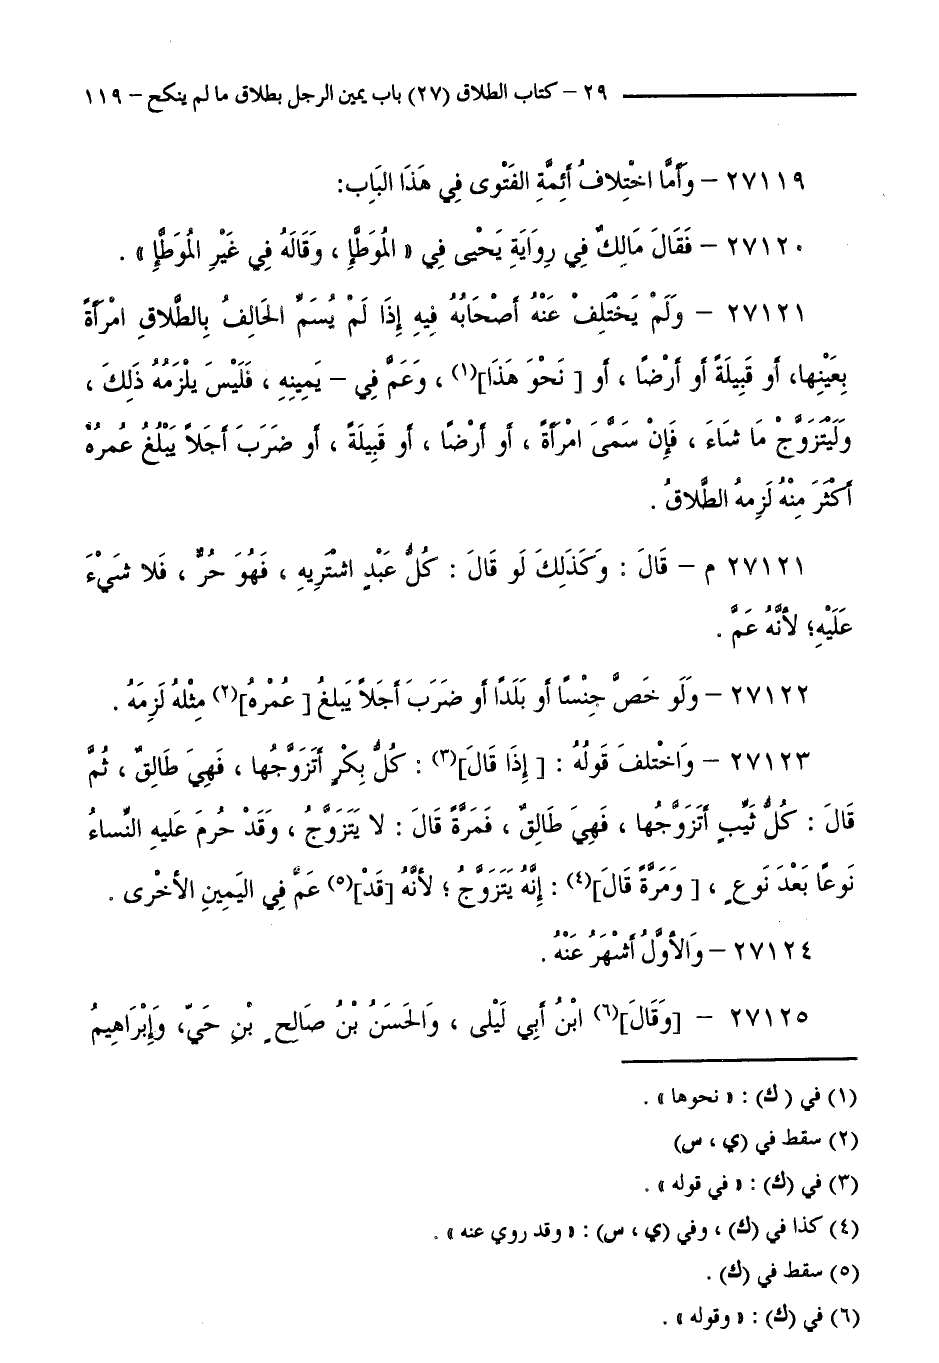 ٢٩ – كتاب الطلاق (٢٧) باب يمين الرجل بطلاق ما لم ينكح – ١١٩
٢٧١١٩ – وَأَمَّا اخْتِلافُ أَئِمَّةِ الفَتْوى فِي هَذَا البَابِ:
٢٧١٢٠ – فَقَالَ مَالِكٌ فِي رِوَايَةِ يَحْيى فِي « المُوَطَّإِ ، وَقَالَهُ فِي غَيْرِ المُوَطَّإِ » .
٢٧١٢١ – وَلَمْ يَخْتَلِفْ عَنْهُ أَصْحَابُهُ فِيهِ إِذَا لَمْ يُسَمِّ الحَالِفُ بِالطَّلاقِ امْرَأَةً
بِعَيْنِها، أَو قَبِيلَةً أَو أَرْضًا ، أَو [ نَحْوَ هَذَا](١) ، وَعَمَّ فِي – يَمِينِهِ ، فَلَيْسَ يلْزَمُهُ ذَلِكَ ،
وَلَيْتَزَوَّجْ مَا شَاءَ ، فَإِنْ سَمَّىَ امْرَأَةً ، أَو أَرْضًا ، أَو قَبِيلَةً ، أَو ضَرَبَ أَجَلاً يَبْلُغُ عُمرهُ
أَكْثَرَ مِنْهُ لَزِمهُ الطَّلاقُ .
٢٧١٢١ م – قَالَ : وَكَذَلِكَ لَو قَالَ : كُلُّ عَبْدٍ اشْتَرِيهِ ، فَهُوَ حُرٌّ ، فَلا شَيْءَ
عَلَيْهِ؛ لأَنَّهُ عَمَّ .
٢٧١٢٢ – وَلَو خَصَّ جِنْسًا أَو بَلَدًا أَو ضَرَبَ أَجَلاً يَبلغُ [ عُمْرهُ](٢) مِثْلهُ لَزِمَهُ .
٢٧١٢٣ – وَاخْتلفَ قَولُهُ : [ إِذَا قَالَ](٣) : كُلُّ بِكْرٍ أَتَزَوَّجُها ، فَهِيَ طَالِقٌ ، ثُمَّ
قَالَ : كُلُّ ثَيِّبٍ أَتَزَوَّجُها ، فَهِيَ طَالِقٌ ، فَمَرَّةً قَالَ : لا يَتَزَوَّجُ ، وَقَدْ حُرمَ عَليهِ النِّساءُ
نَوعًا بَعْدَ نَوعٍ ، [ وَمَرَّةً قَالَ](٤) : إِنَّهُ يَتَزَوَّجُ ؛ لأَنَّهُ [قَدْ](٥) عَمَّ فِي اليَمِينِ الأخْرى .
٢٧١٢٤ – وَالأوَّلُ أَشْهَرُ عَنْهُ .
٢٧١٢٥ – [وَقَالَ](٦) ابْنُ أَبِي لَيْلى ، وَالحَسَنُ بْنُ صَالِحِ بْنِ حَيٍّ، وَإِبْرَاهِيمُ
(١) في ( ك) : « نحوها » .
(٢) سقط في (ي ، س)
(٣) في (ك) : « في قوله » .
(٤) كذا في (ك) ، وفي (ي ، س) : « وقد روي عنه » .
(٥) سقط في (ك) .
(٦) في (ك) : « وقوله » .